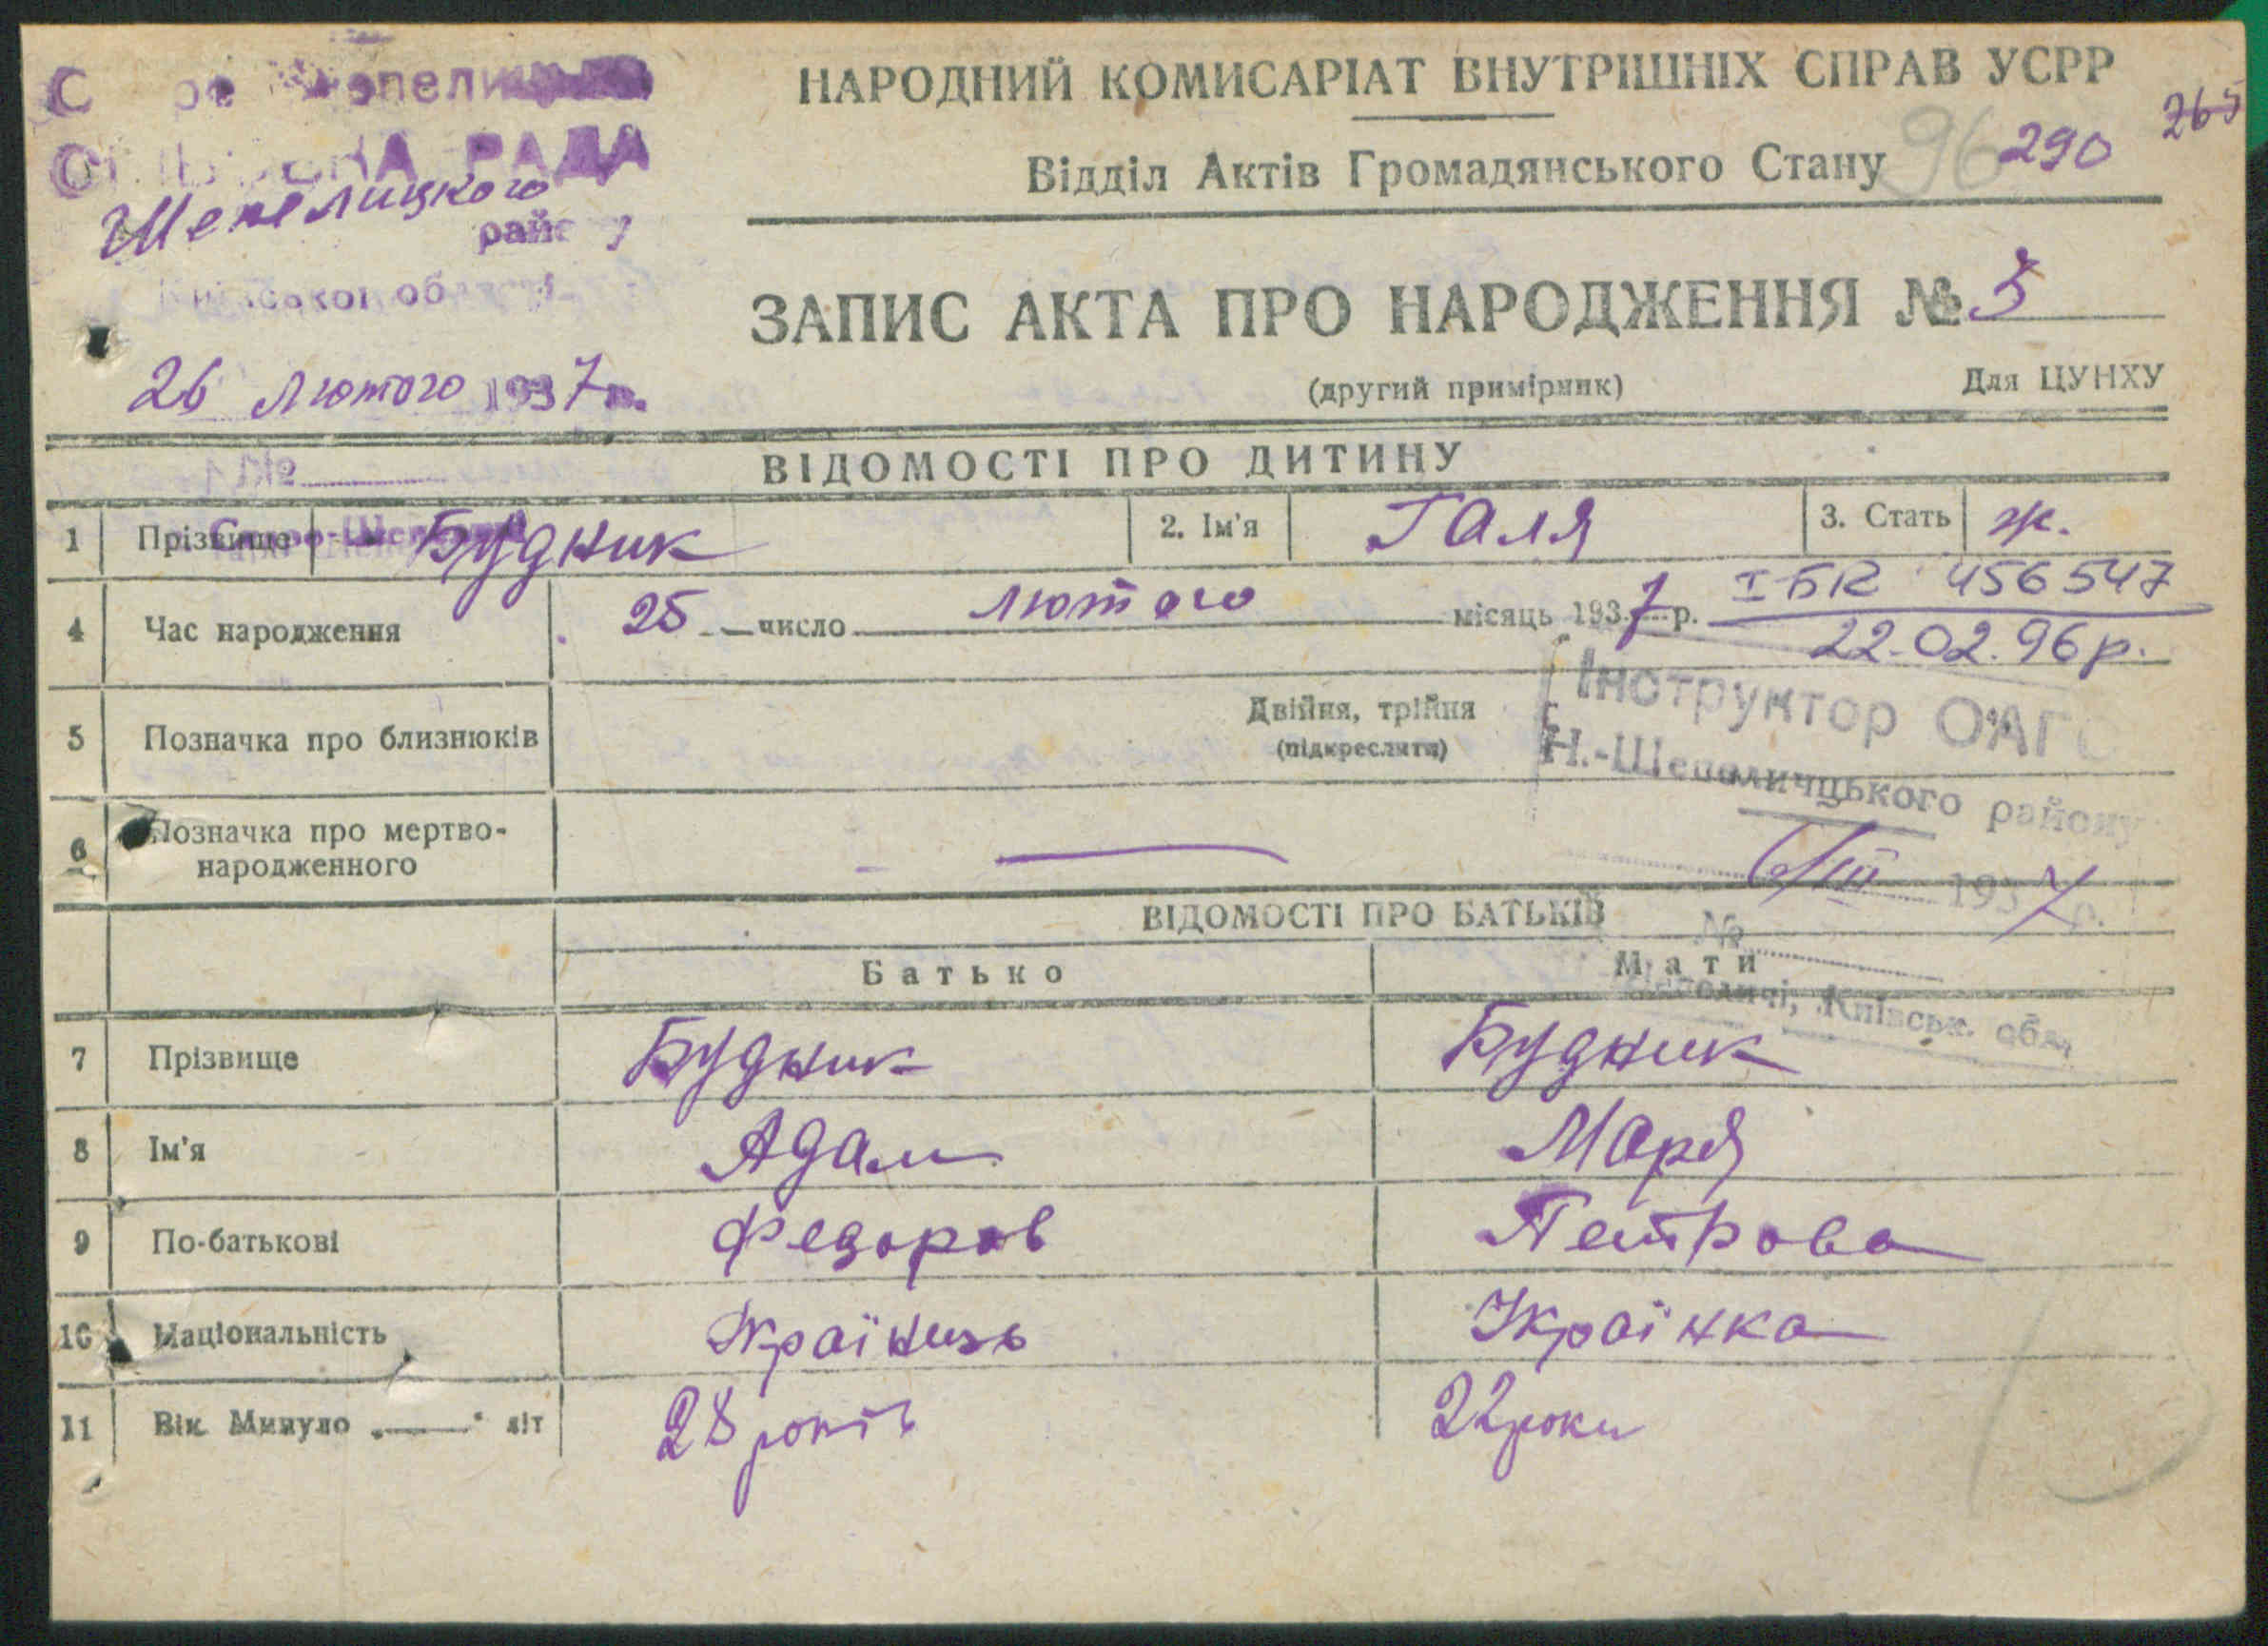 НАРОДНИЙ КОМИСАРІАТ ВНУТРІШНІХ СПРАВ УСРР
265
Відділ Актів Громадянського Стану
96
290
РАДА
Шепелицкого
району
Київської області
ЗАПИС АКТА ПРО НАРОДЖЕННЯ № 3
26 лютого 1937 р.
(другий примірник)
Для ЦУНХУ
ВІДОМОСТІ ПРО ДИТИНУ
1 Прізвище Будник 2. Ім'я Галя 3. Стать ж.
4 Час народження 25 число лютого місяць 1937 р. І-БК 456547
22.02.96р.
5 Позначка про близнюків Двійня, трійня
(підкреслити)
Інструктор ОАГС
Н.-Шепеличцького району
6 Позначка про мертво-
народженного
6/III 1937 р.
№
ВІДОМОСТІ ПРО БАТЬКІВ
Батько Мати
Шепеличі, Київськ. обл.
7 Прізвище Будник Будник
8 Ім'я Адам Марія
9 По-батькові Федоров Петрова
10 Національність Українець Українка
11 Вік. Минуло „—“ літ 28 років 22 роки